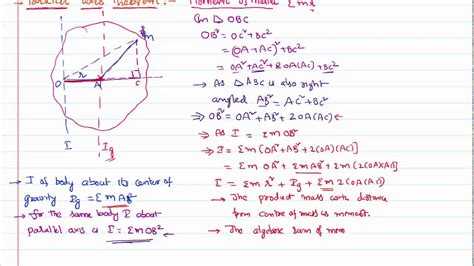 Parallel axis theorem :- Moment of
In △ OBC
OB² = OC² + BC²
= (OA+AC)² + BC²
= OA² + AC² + 2OA(AC) + BC²
→ As △ABC is also right
angled AB² = AC² + BC²
⇒ OB² = OA² + AB² + 2OA(AC) ←
→ As I = Σm OB²
⇒ I = Σm [OA² + AB² + 2(OA)(AC)]
I = Σm OA² + Σm AB² + Σm (2(OA)(AC))
I = Σm r² + Ig + Σm 2(OA)(AC)
→ The product mass with distance
from centre of mass is moment.
→ The algebraic sum of
O r A C
I Ig
→ I of body about its center of
gravity Ig = Σm AB²
→ for the same body I about
parallel axis is I = Σm OB²